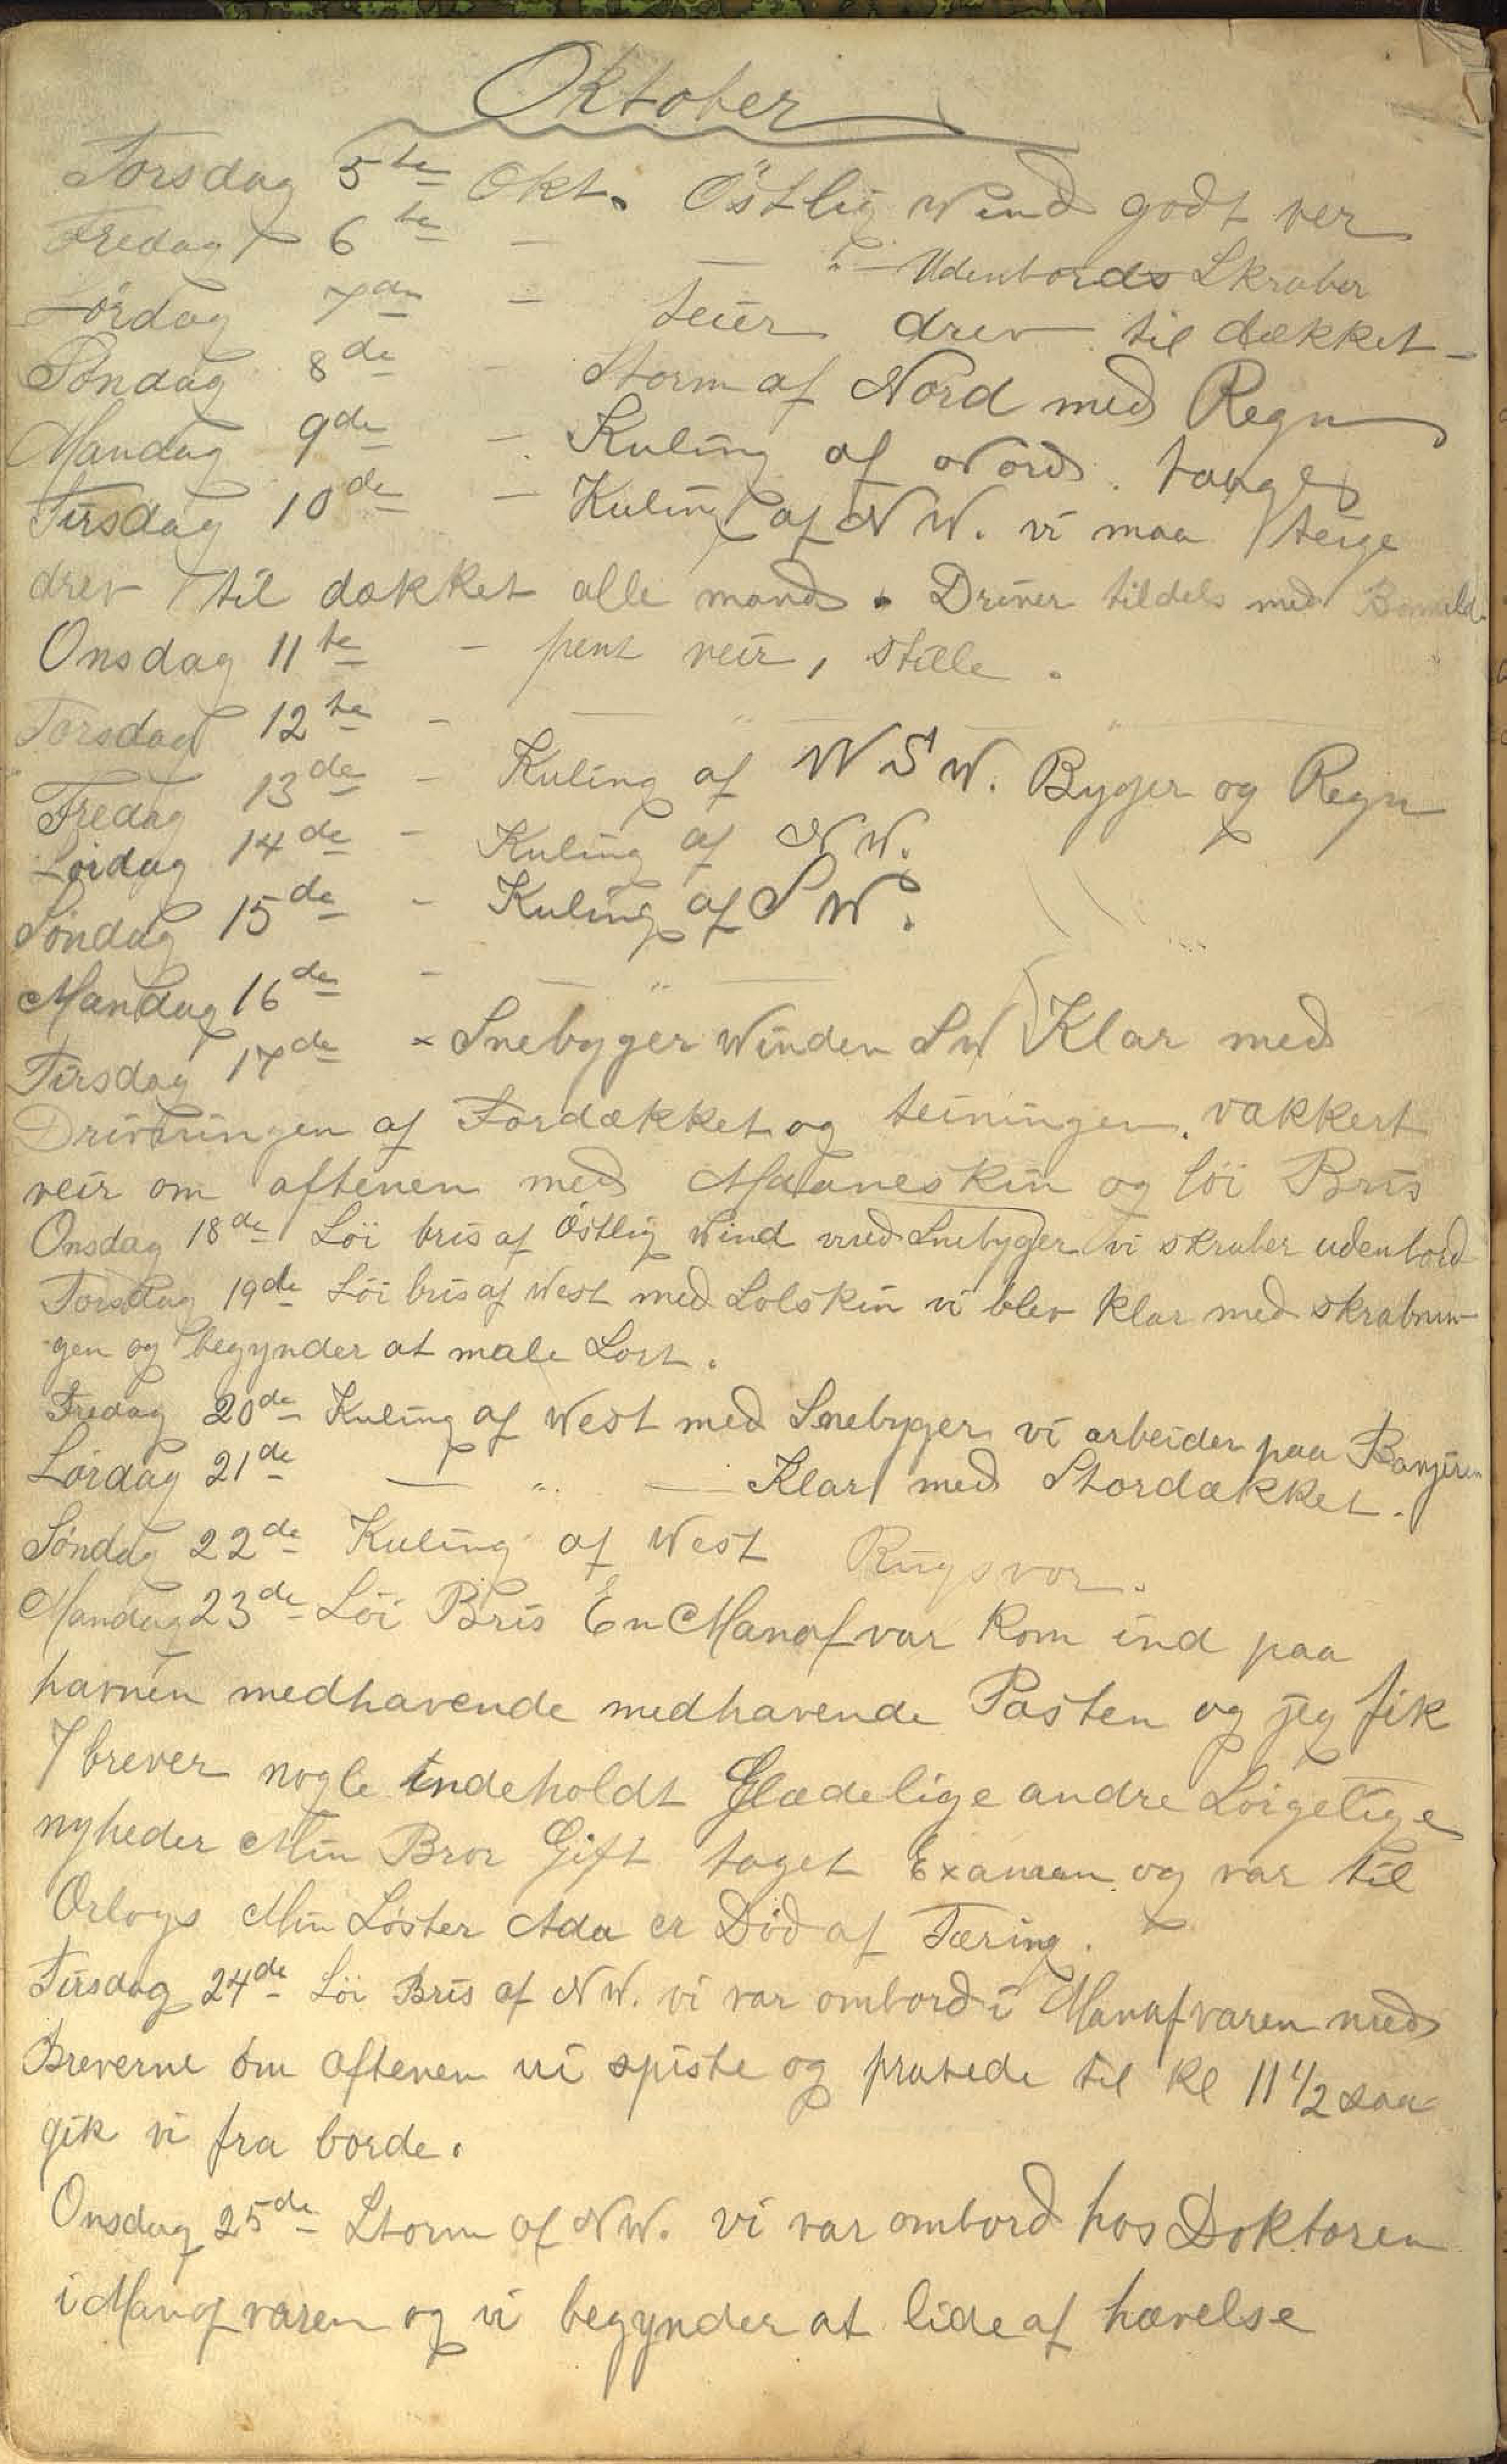 Oktober
Torsdag 5te Okt. Östlig Wind godt ver
Fredag 6te — — " — Udenbords Skraber
Lørdag 7de — teier drev til dækket —
Søndag 8de — Storm af Nord med Regn
Mandag 9de — Kuling af Nord.
Tirsdag 10de — Kuling af N W. vi maa teige
drev til dækket alle mand. Driver tildels med
Onsdag 11te — pent veir, stille.
Torsdag 12te — — " — "
Fredag 13de — Kuling af W S W. Byger og Regn
Lørdag 14de — Kuling af N W.
Søndag 15de — Kuling af S W.
Mandag 16de — — " —
Tirsdag 17de — Snebyger Winden S W Klar med
Drivningen af Fordækket og teiningen. vakkert
veir om aftenen med Maaneskin og löi Bris
Onsdag 18de Löi bris af Östlig Wind med Snebyger vi skraber udenbord
Torsdag 19de Löi bris af West med Solskin vi blev klar med skrabnin-
-gen og begynder at male Sort.
Fredag 20de Kuling af West med Snebyger vi arbeider paa Banjeren
Lørdag 21de — " — Klar med Stordækket.
Søndag 22de Kuling af West
Mandag 23de Löi Bris En Manofvar kom ind paa
havnen medhavende medhavende Posten og jeg fik
7 brever nogle indeholdt Glædelige andre Sörgelige
nyheder Min Bror Gift taget Examen og var til
Orlogs Min Søster Ada er Død af Tæring.
Tirsdag 24de Löi Bris af N W. vi var ombord i Manofvaren med
Breverne om aftenen vi spiste og pratede til kl 11 1/2 saa
gik vi fra borde.
Onsdag 25de Storm af N W. vi var ombord hos Doktoren
i Manofvaren og vi begynder at lide af hævelse